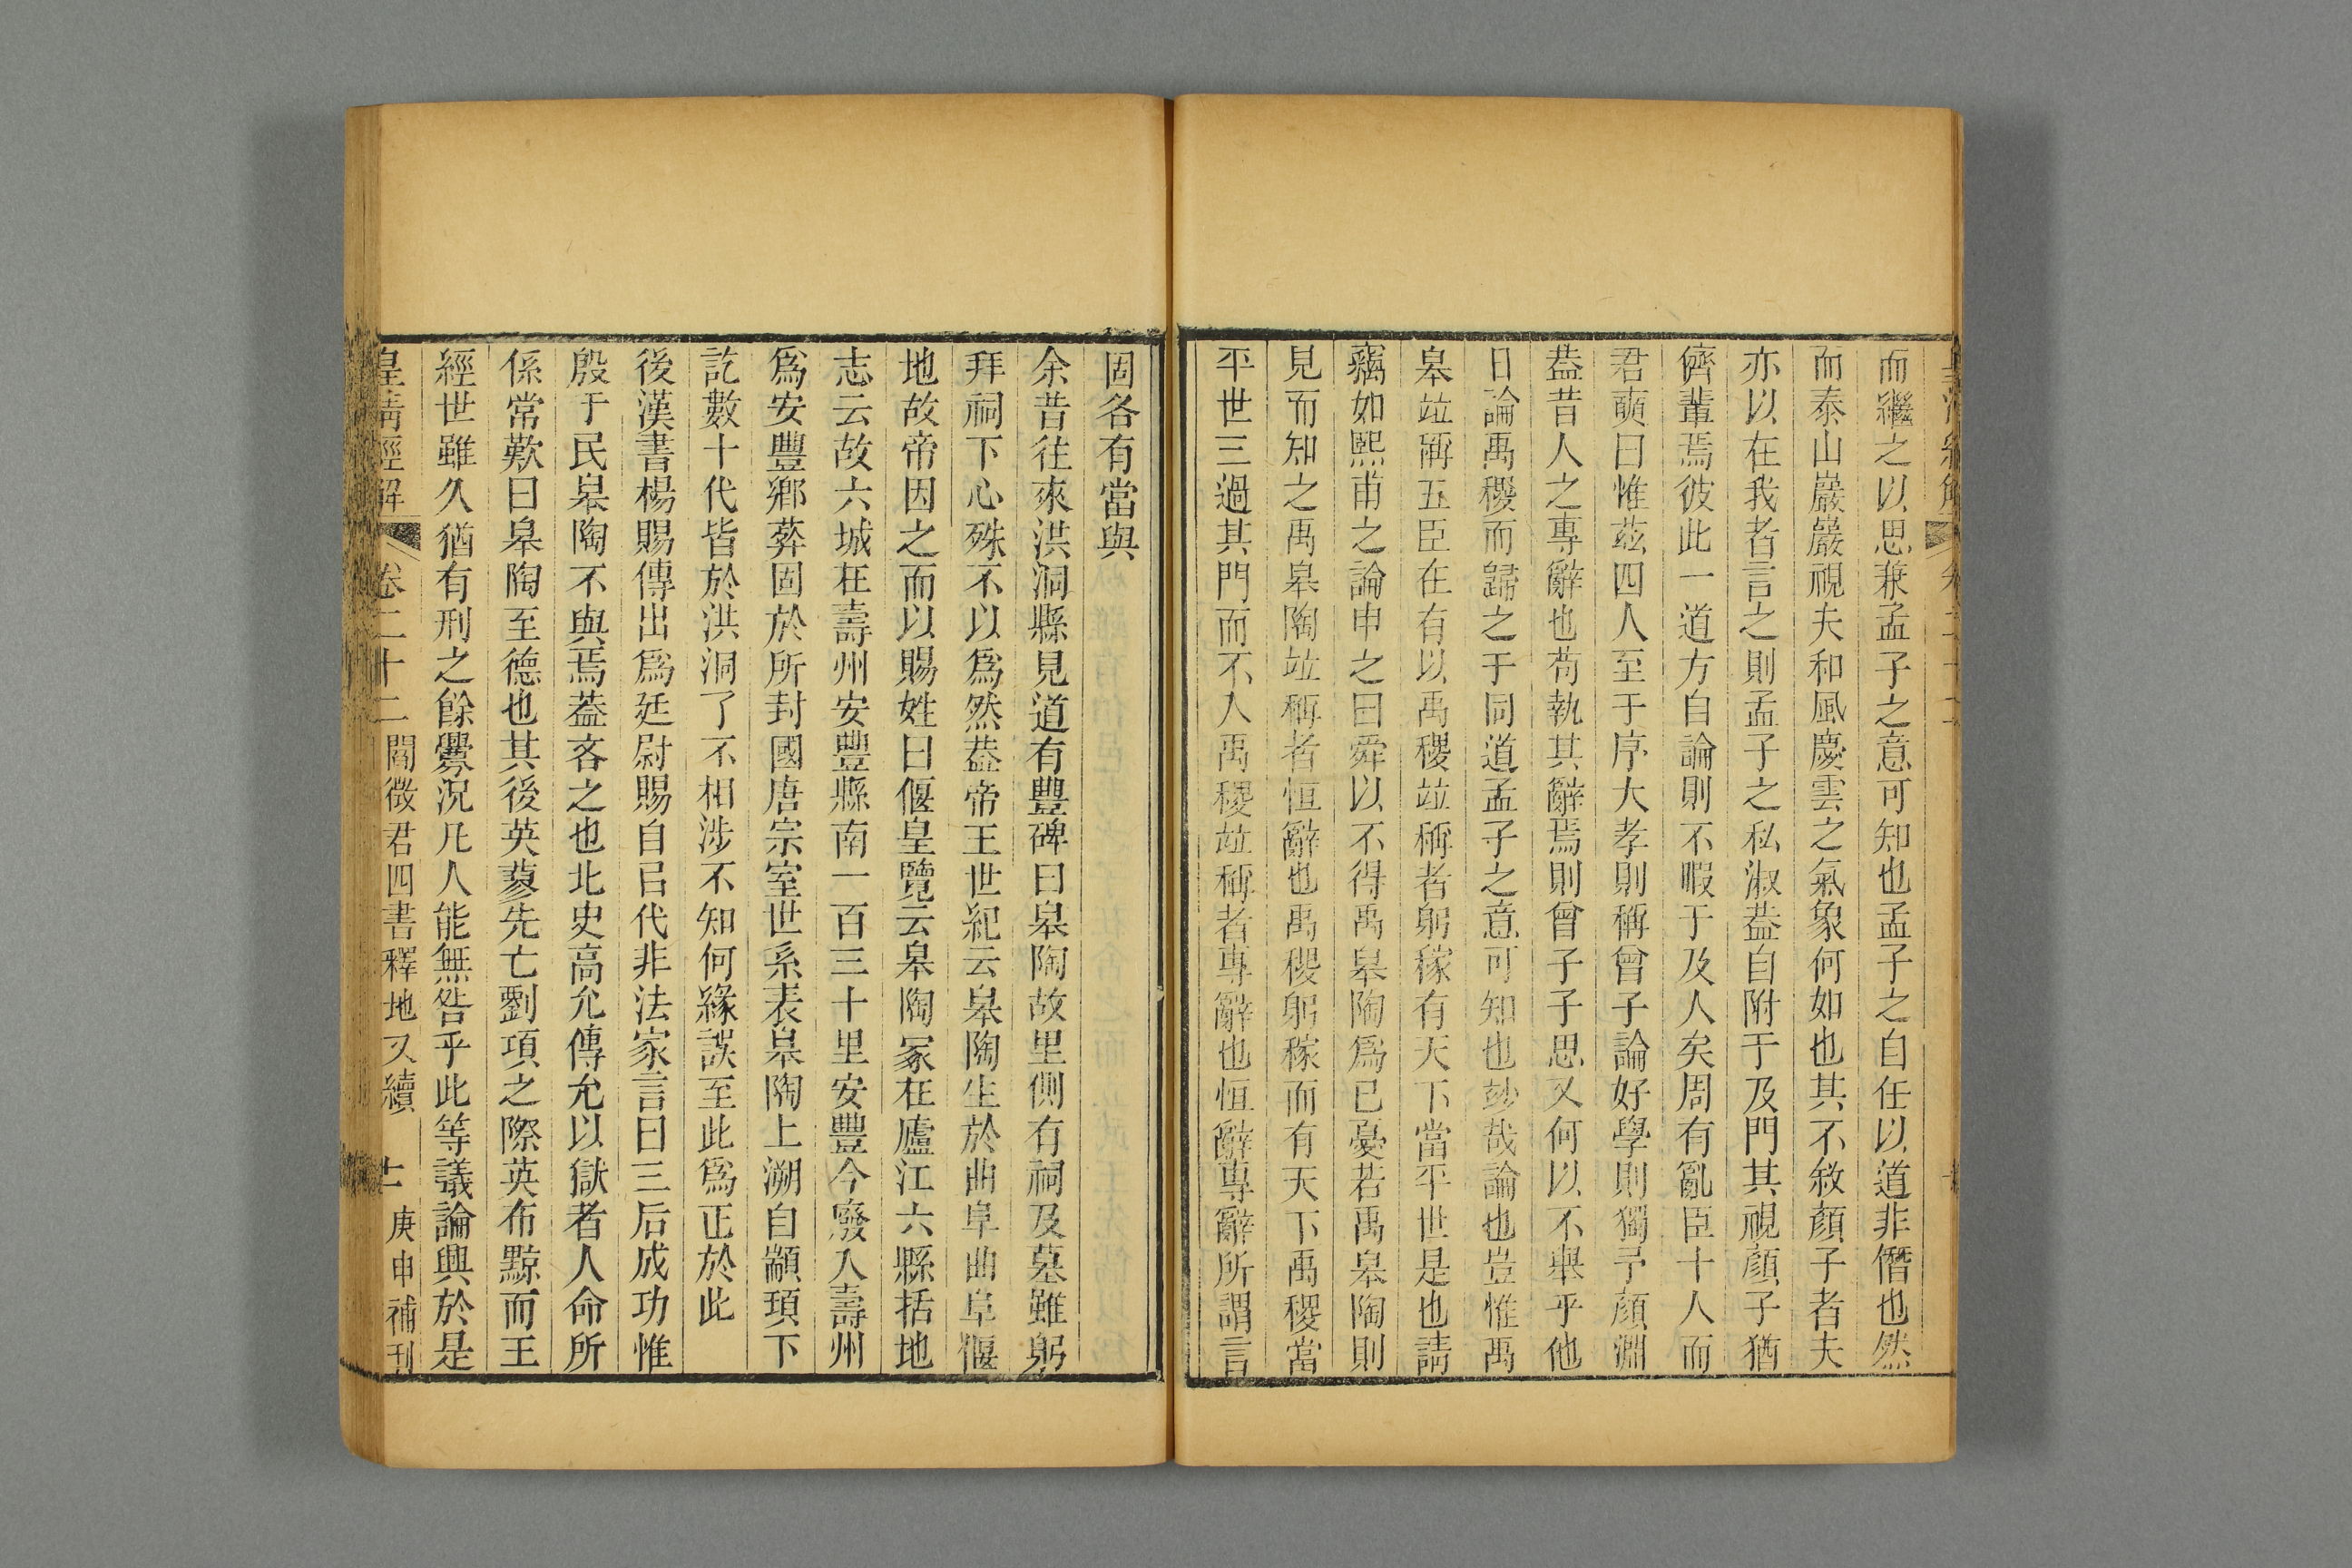 而繼之以思兼孟子之意可知也孟子之自任以道非僭也然
而泰山巖巖視夫和風慶雲之氣象何如也其不敘顏子者夫
亦以在我者言之則孟子之私淑葢自附于及門其視顏子猶
儕輩焉彼此一道方自論則不暇于及人矣周有亂臣十人而
君奭曰惟茲四人至于序大孝則稱曾子論好學則獨予顏淵
葢昔人之專辭也苟執其辭焉則曾子子思又何以不舉乎他
日論禹稷而歸之于同道孟子之意可知也玅哉論也豈惟禹
皋竝稱五臣在有以禹稷竝稱者躬稼有天下當平世是也請
竊如熙甫之論申之曰舜以不得禹皋陶爲已憂若禹皋陶則
見而知之禹皋陶竝稱者恒辭也禹稷躬稼而有天下禹稷當
平世三過其門而不入禹稷竝稱者專辭也恒辭專辭所謂言
固各有當與
余昔往來洪洞縣見道有豐碑曰皋陶故里側有祠及墓雖躬
拜祠下心殊不以爲然葢帝王世紀云皋陶生於曲阜曲阜偃
地故帝因之而以賜姓曰偃皇覽云皋陶冢在廬江六縣括地
志云故六城在壽州安豐縣南一百三十里安豐今廢入壽州
爲安豐鄉葬固於所封國唐宗室世系表皋陶上溯自顓頊下
訖數十代皆於洪洞了不相涉不知何緣誤至此爲正於此
後漢書楊賜傳出爲廷尉賜自㠯代非法家言曰三后成功惟
殷于民皋陶不與焉葢吝之也北史高允傳允以獄者人命所
係常歎曰皋陶至德也其後英蓼先亡劉項之際英布黥而王
經世雖久猶有刑之餘釁況凡人能無咎乎此等議論興於是
皇清經解 卷二十二 閻徵君四書釋地又續 十一 庚申補刊